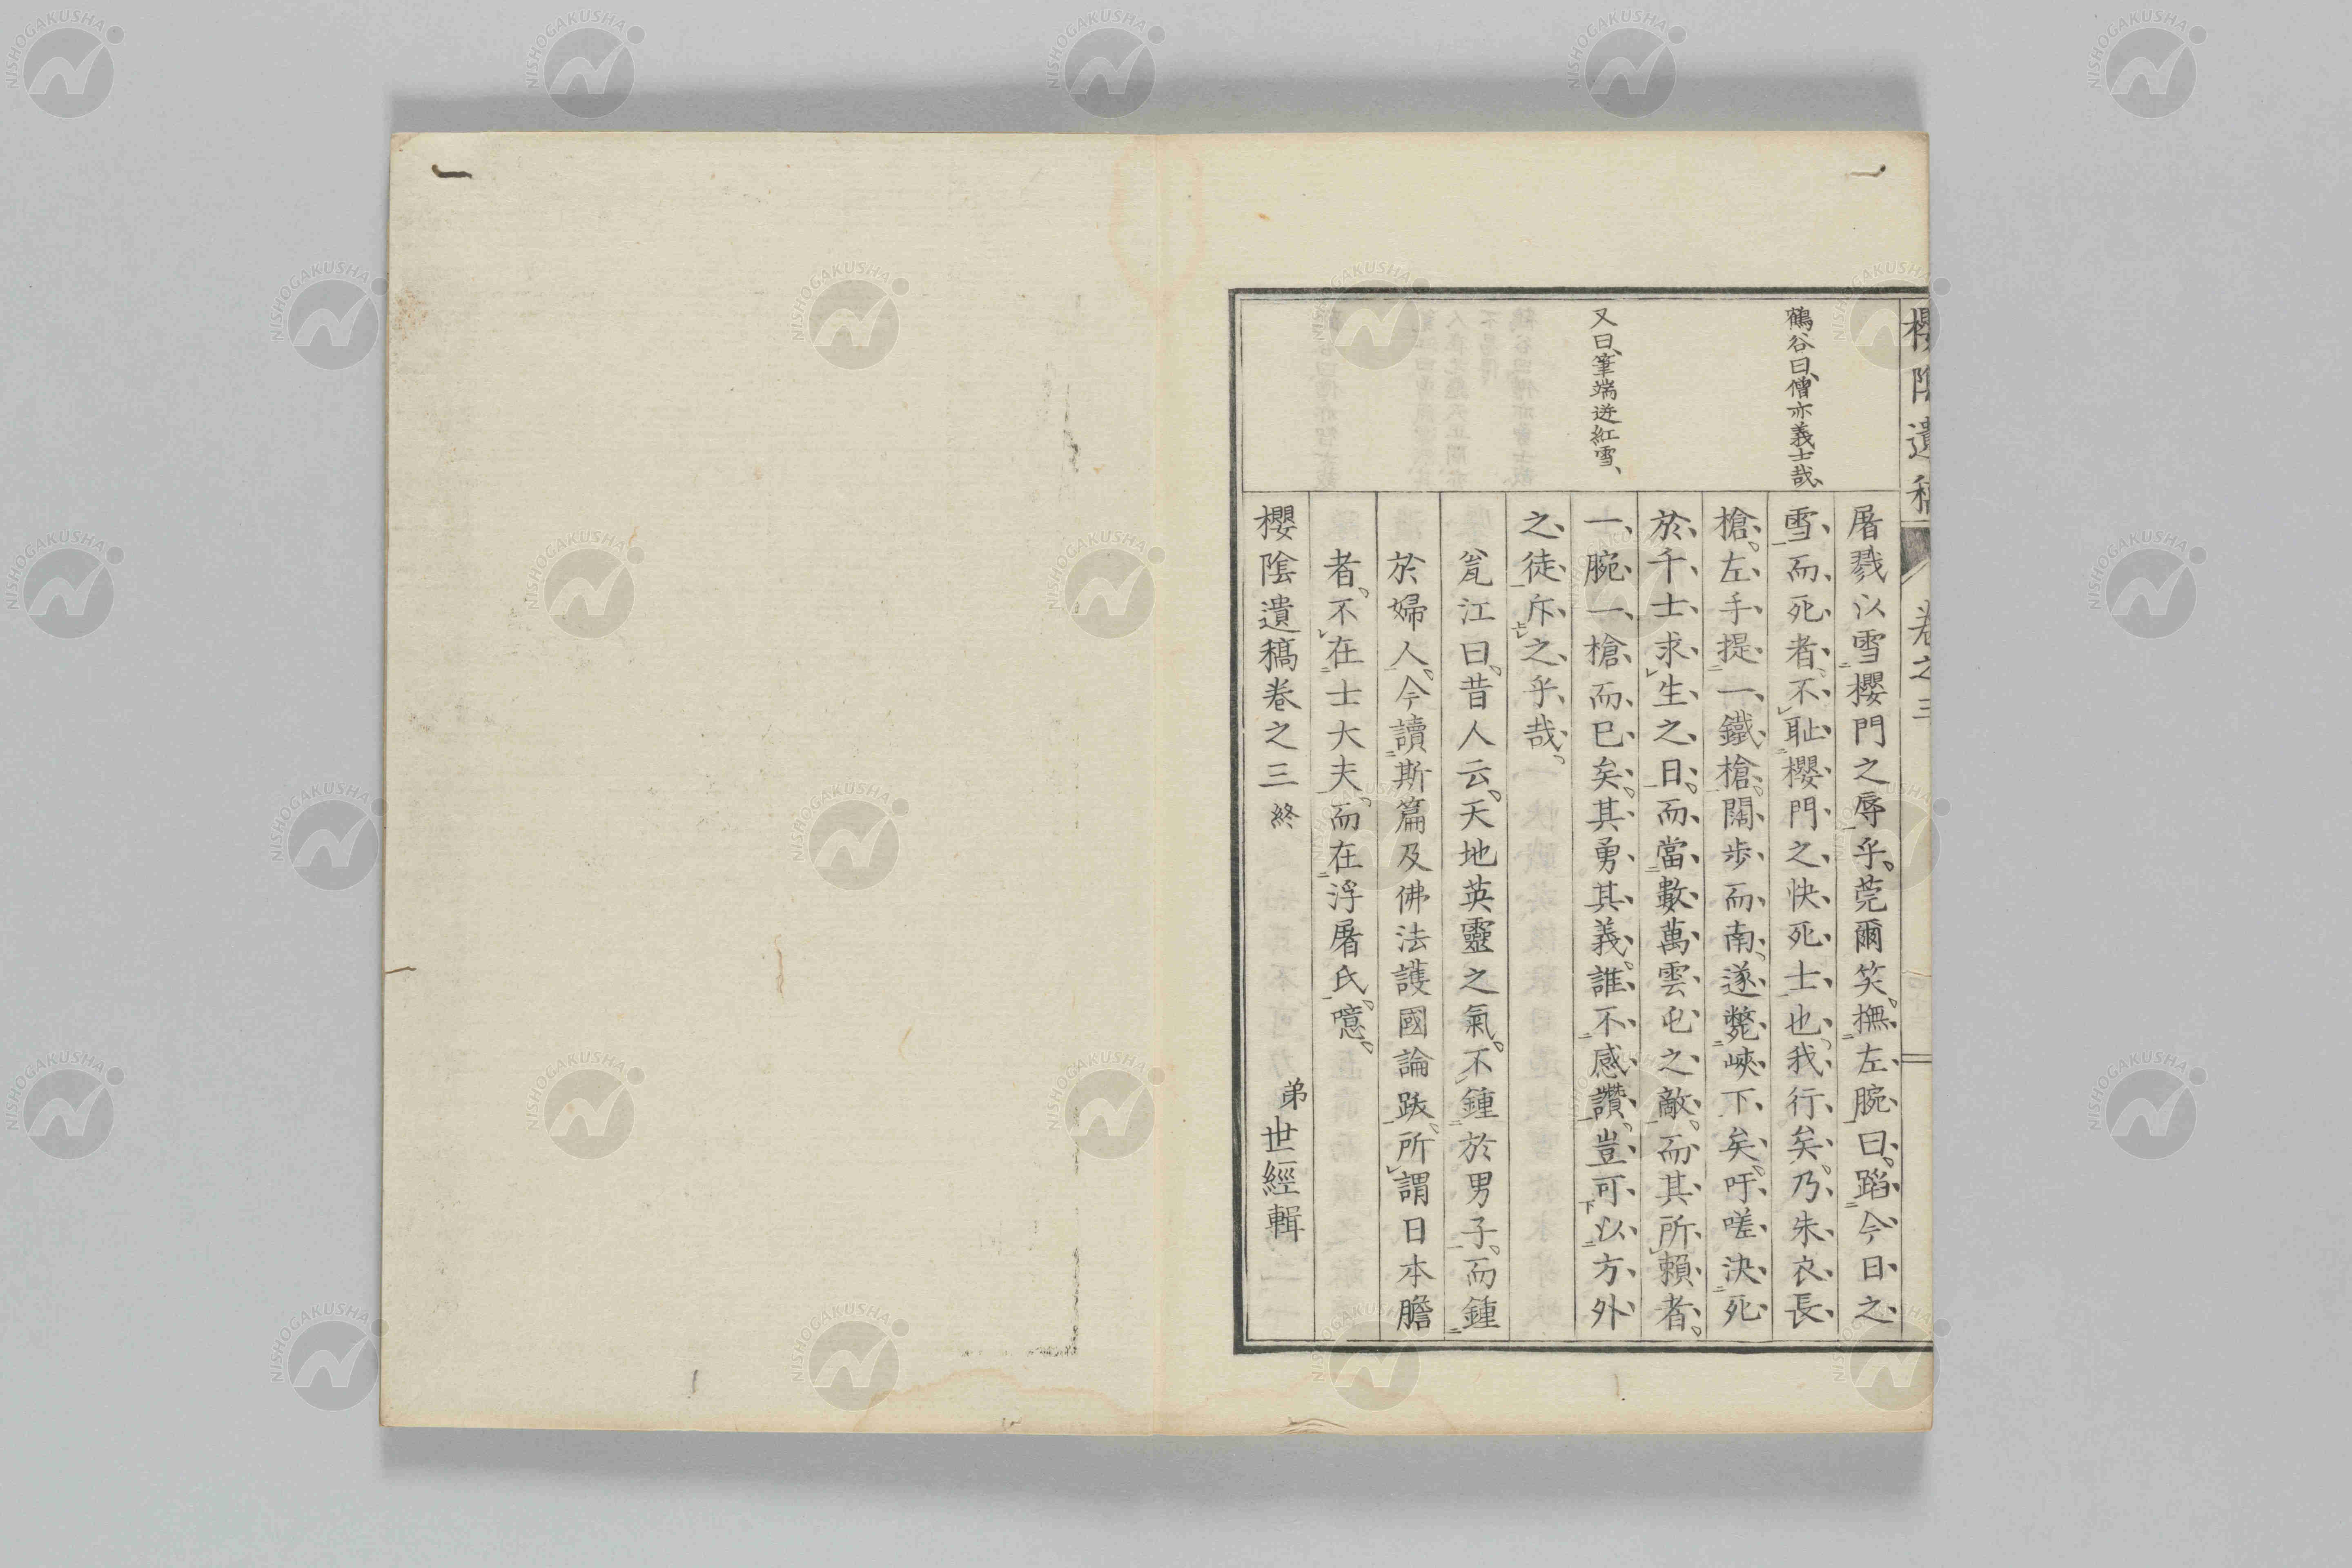 櫻陰遺稿
卷之三
鶴谷曰、僧亦義士哉、
又曰、筆端迸紅雪、
屠戮以雪櫻門之辱乎。莞爾笑、撫左腕曰。蹈今日之
雪而死者、不耻櫻門之快死士也、我行矣、乃朱衣長
槍。左手提一鐵槍。闊步而南、遂斃峽下矣。吁嗟決死
於千士求生之日。而當數萬雲屯之敵。而其所賴者。
一腕一槍而已矣。其勇其義。誰不感讚。豈可以方外
之徒斥之乎哉。
瓮江曰。昔人云。天地英靈之氣。不鍾於男子。而鍾
於婦人。今讀斯篇及佛法護國論跋。所謂日本膽
者。不在士大夫。而在浮屠氏。噫。
櫻陰遺稿卷之三終
弟世經輯
NISHOGAKUSHA